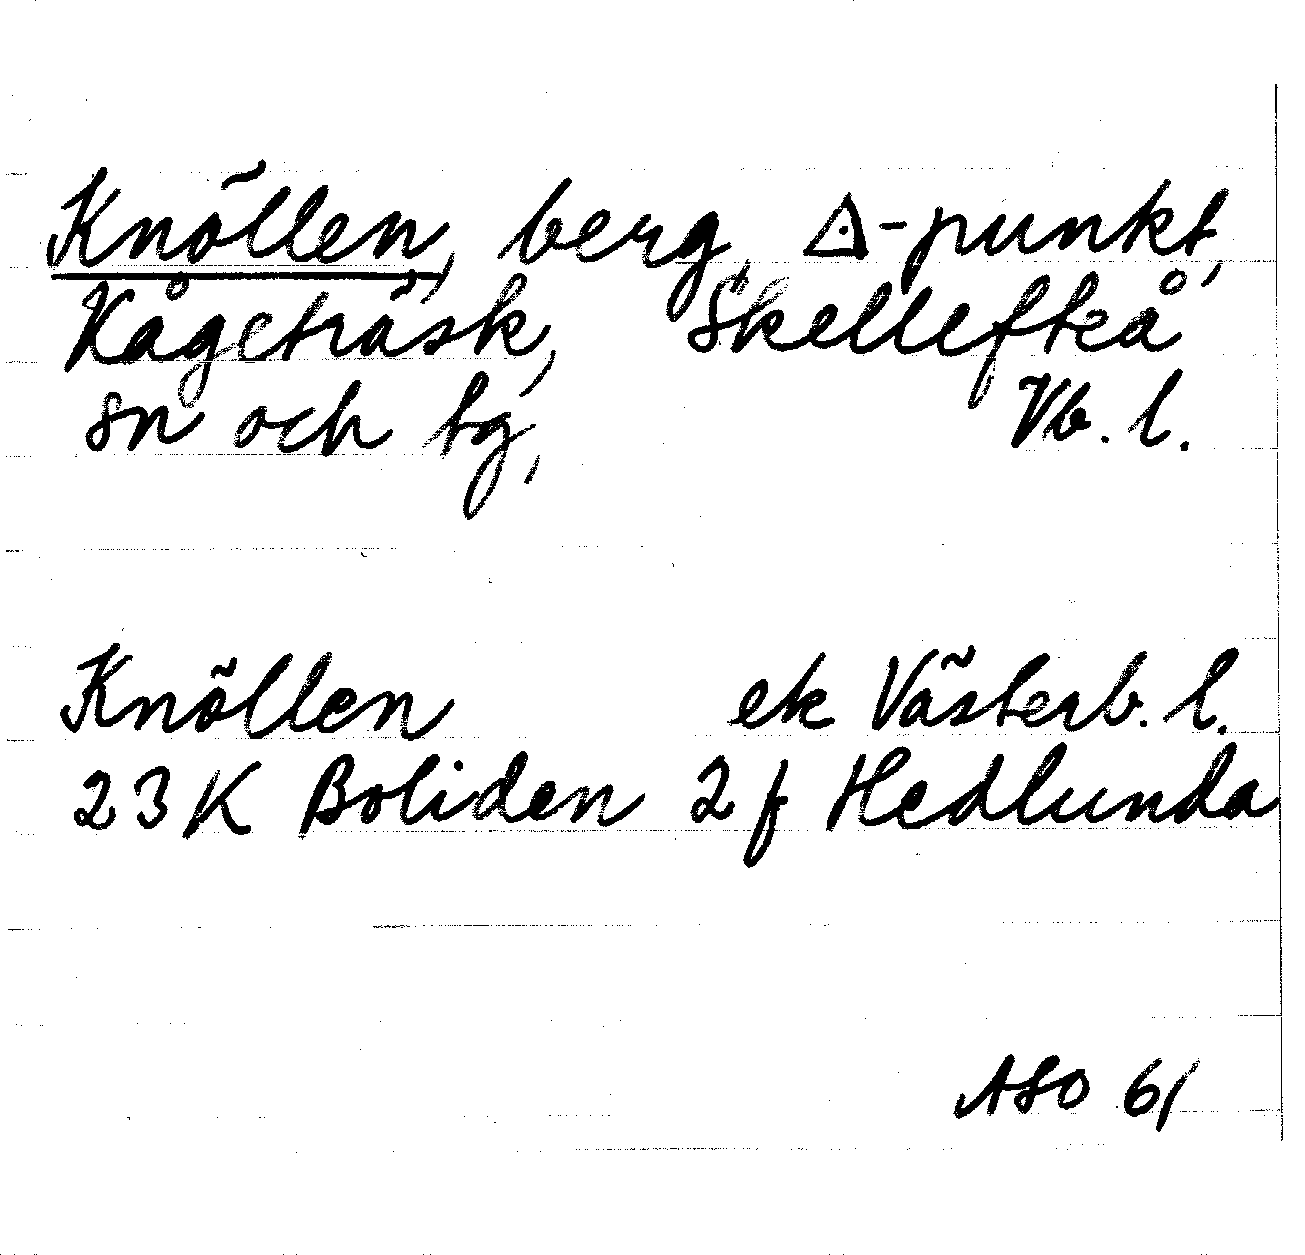 Knöllen, berg, △-punkt,
Kågeträsk, Skellefteå
sn och tg, Vb. l.
Knöllen ek Västerb. l.
23K Boliden 2f Hedlunda
ASO 61